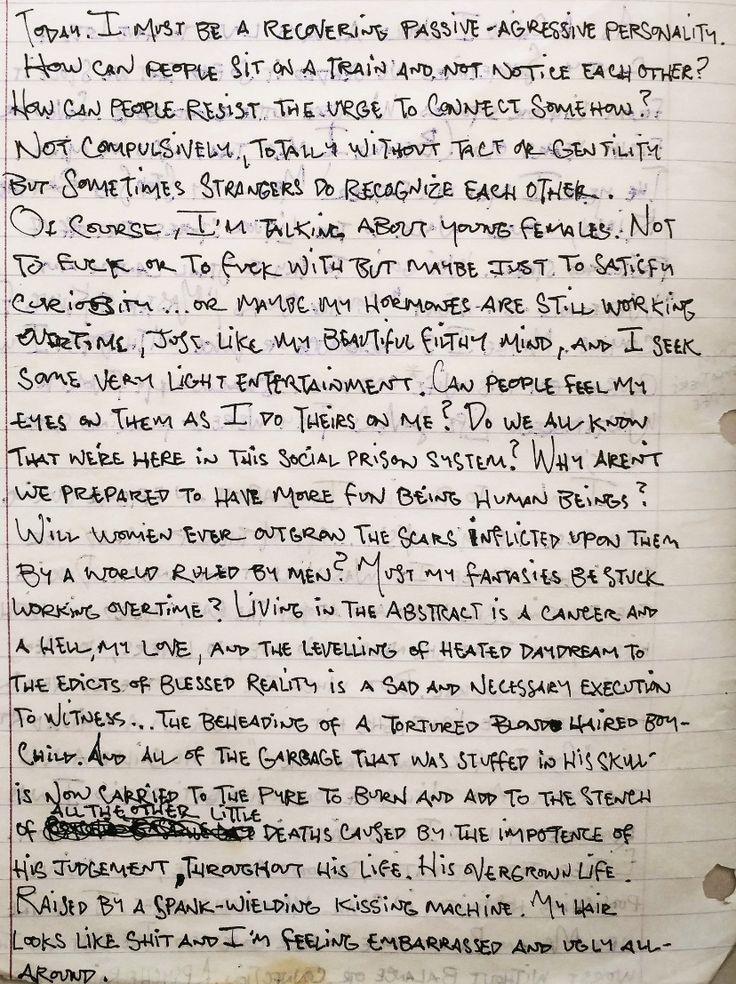 TODAY. I MUST BE A RECOVERING PASSIVE-AGRESSIVE PERSONALITY.
HOW CAN PEOPLE SIT ON A TRAIN AND NOT NOTICE EACH OTHER?
HOW CAN PEOPLE RESIST THE URGE TO CONNECT SOMEHOW?
NOT COMPULSIVELY, TOTALLY WITHOUT TACT OR GENTILITY
BUT SOMETIMES STRANGERS DO RECOGNIZE EACH OTHER.
OF COURSE, I'M TALKING ABOUT YOUNG FEMALES. NOT
TO FUCK OR TO FUCK WITH BUT MAYBE JUST TO SATICFY
CURIOSITY... OR MAYBE MY HORMONES ARE STILL WORKING
OVERTIME, JUST LIKE MY BEAUTIFUL FILTHY MIND, AND I SEEK
SOME VERY LIGHT ENTERTAINMENT. CAN PEOPLE FEEL MY
EYES ON THEM AS I DO THEIRS ON ME? DO WE ALL KNOW
THAT WE'RE HERE IN THIS SOCIAL PRISON SYSTEM? WHY AREN'T
WE PREPARED TO HAVE MORE FUN BEING HUMAN BEINGS?
WILL WOMEN EVER OUTGROW THE SCARS INFLICTED UPON THEM
BY A WORLD RULED BY MEN? MUST MY FANTASIES BE STUCK
WORKING OVERTIME? LIVING IN THE ABSTRACT IS A CANCER AND
A HELL, MY LOVE, AND THE LEVELLING OF HEATED DAYDREAM TO
THE EDICTS OF BLESSED REALITY IS A SAD AND NECESSARY EXECUTION
TO WITNESS... THE BEHEADING OF A TORTURED BLONDE HAIRED BOY-
CHILD. AND ALL OF THE GARBAGE THAT WAS STUFFED IN HIS SKULL
IS NOW CARRIED TO THE PYRE TO BURN AND ADD TO THE STENCH
OF ALL THE OTHER LITTLE DEATHS CAUSED BY THE IMPOTENCE OF
HIS JUDGEMENT, THROUGHOUT HIS LIFE. HIS OVERGROWN LIFE.
RAISED BY A SPANK-WIELDING KISSING MACHINE. MY HAIR
LOOKS LIKE SHIT AND I'M FEELING EMBARRASSED AND UGLY ALL-
AROUND.